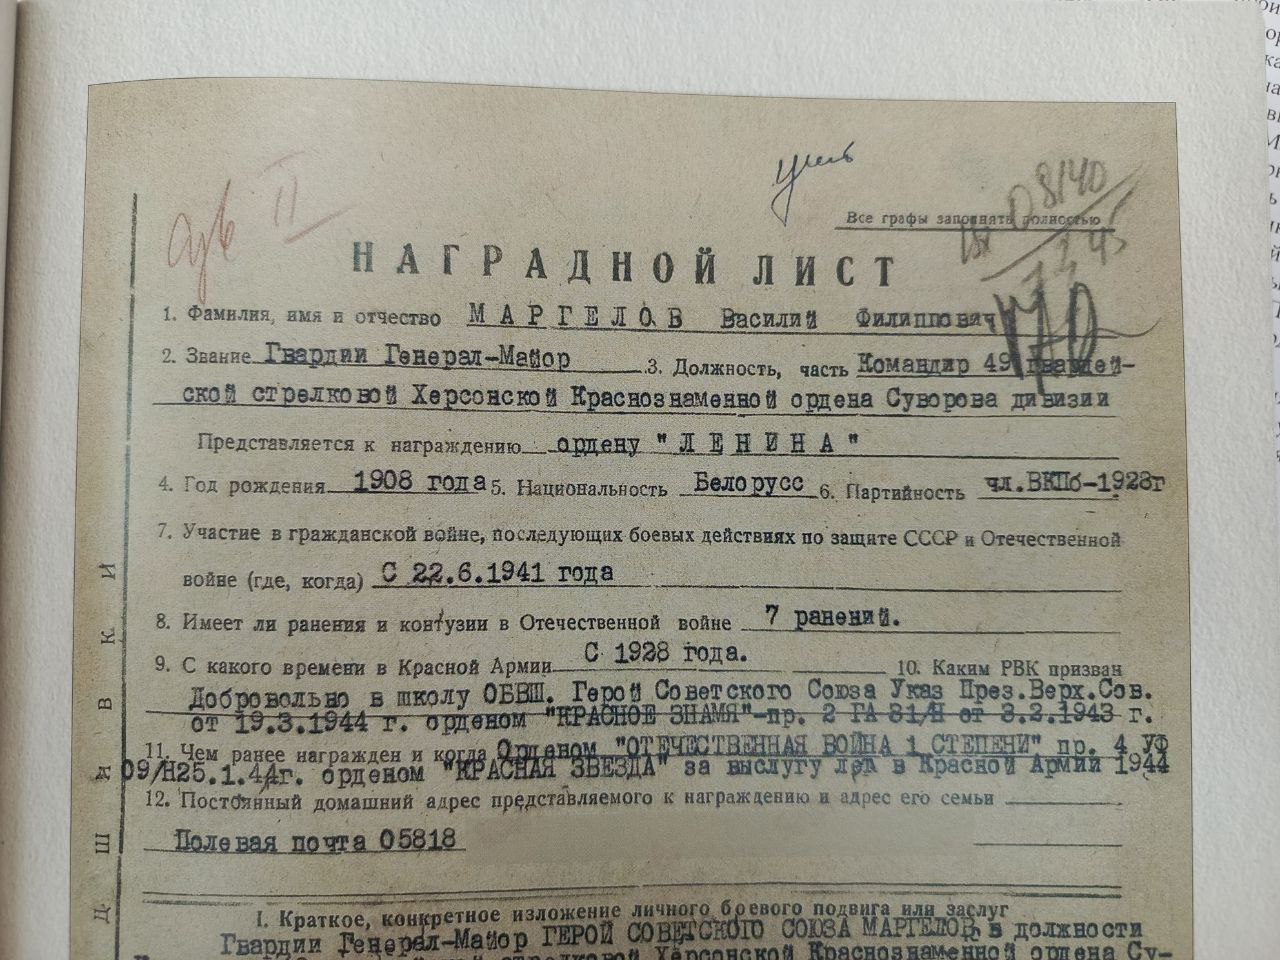 Все графы заполнять полностью
08140
НАГРАДНОЙ ЛИСТ
1. Фамилия, имя и отчество МАРГЕЛОВ Василий Филиппович
70
2. Звание Гвардии Генерал-Майор 3. Должность, часть Командир 49 гвардей-
ской стрелковой Херсонской Краснознаменной ордена Суворова дивизии
Представляется к награждению ордену "ЛЕНИНА"
4. Год рождения 1908 года 5. Национальность Белорусс 6. Партийность чл.ВКПб-1928г
7. Участие в гражданской войне, последующих боевых действиях по защите СССР и Отечественной
войне (где, когда) С 22.6.1941 года
8. Имеет ли ранения и контузии в Отечественной войне 7 ранений.
9. С какого времени в Красной Армии С 1928 года. 10. Каким РВК призван
Добровольно в школу ОБВШ. Герой Советского Союза Указ През.Верх.Сов.
от 19.3.1944 г. орденом "КРАСНОЕ ЗНАМЯ"-пр. 2 ГА 31/Н от 3.2.1943 г.
11. Чем ранее награжден и когда Орденом "ОТЕЧЕСТВЕННАЯ ВОЙНА 1 СТЕПЕНИ" пр. 4 УФ
09/Н25.1.44г. орденом "КРАСНАЯ ЗВЕЗДА" за выслугу лет в Красной Армии 1944
12. Постоянный домашний адрес представляемого к награждению и адрес его семьи
Полевая почта 05818
I. Краткое, конкретное изложение личного боевого подвига или заслуг
Гвардии Генерал-Майор ГЕРОЙ СОВЕТСКОГО СОЮЗА МАРГЕЛОВ в должности
стрелковой Херсонской Краснознаменной ордена Су-